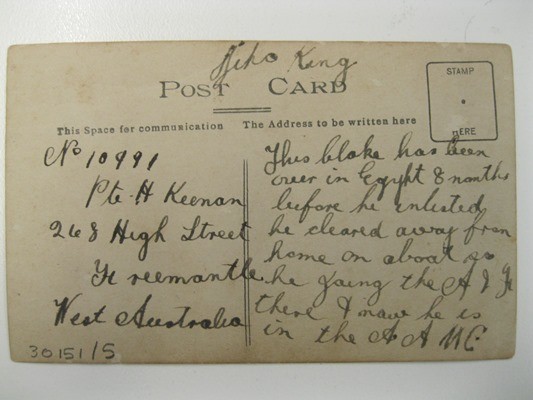 King
POST CARD
STAMP
HERE
This Space for communication
The Address to be written here
No 10991
Pte H Keenan
268 High Street
Freemantle
West Australia
This bloke has been
over in Egypt 8 months
before he enlisted
he cleared away from
home on a boat so
he going the A I F
there & now he is
in the A A M C
30151/5